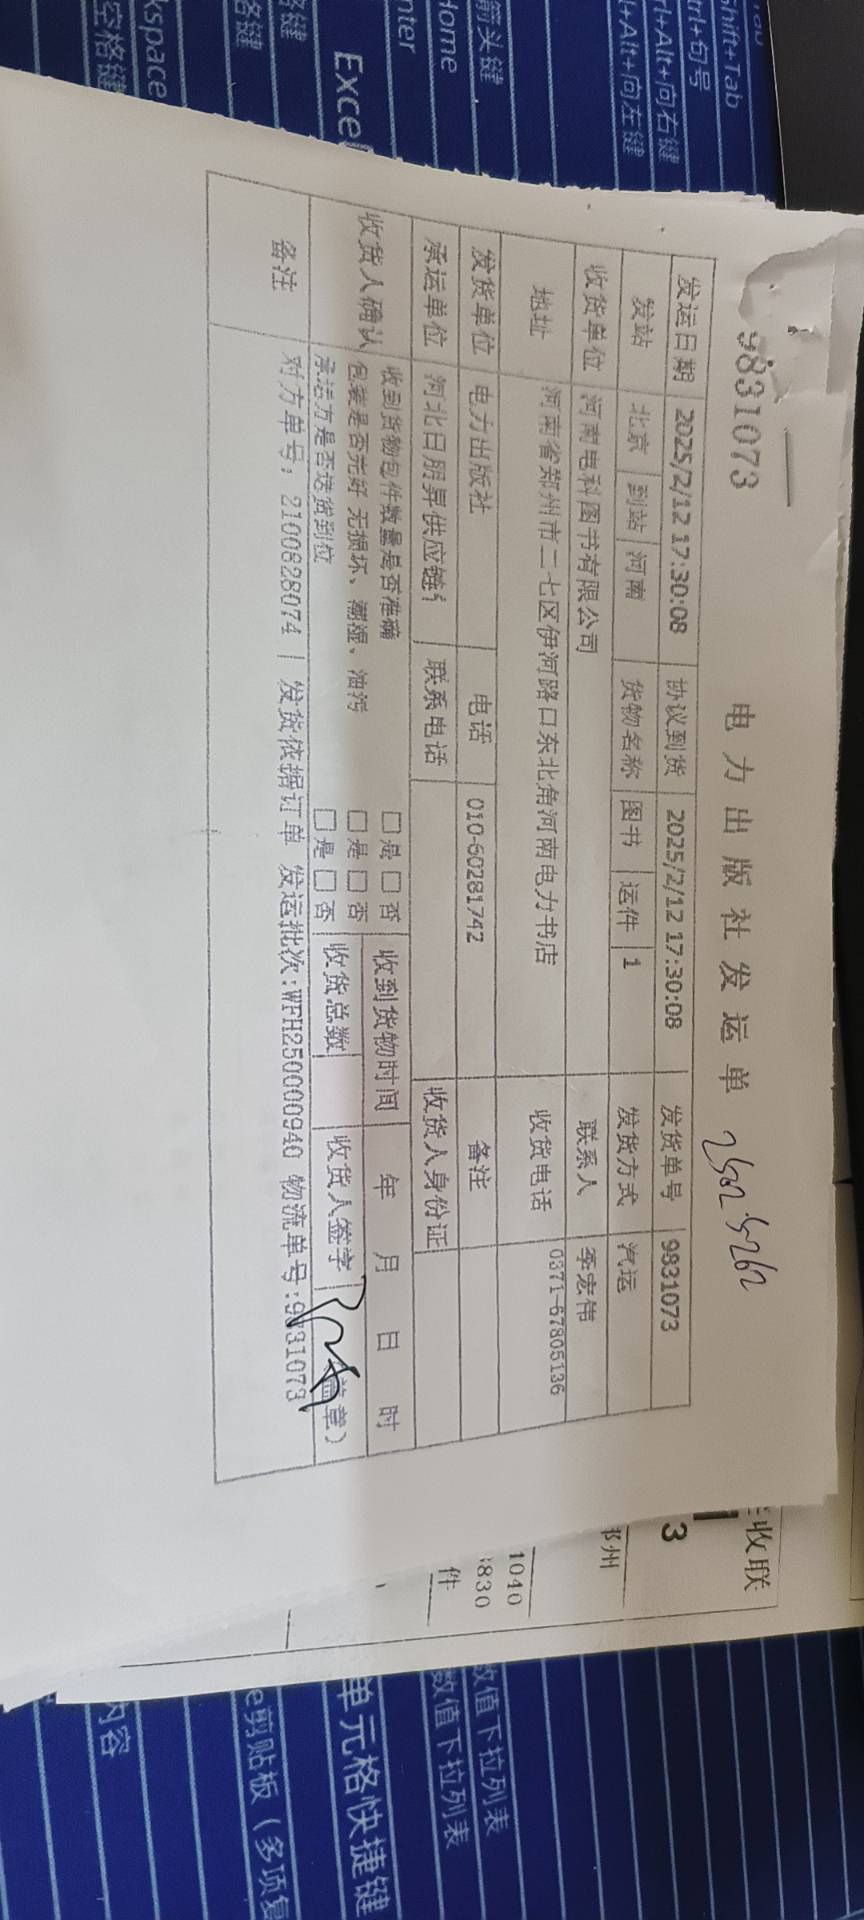 9831073
电力出版社发运单
发运日期 2025/2/12 17:30:08 协议到货 2025/2/12 17:30:08 发货单号 9831073
发站 北京 到站 河南 货物名称 图书 运件 1 发货方式 汽运
收货单位 河南电科图书有限公司 联系人 李宏伟
地址 河南省郑州市二七区伊河路口东北角河南电力书店 收货电话 0371-67805136
发货单位 电力出版社 电话 010-60281742 备注
承运单位 河北日朋昇供应链 联系电话 收货人身份证
收货人确认 收到货物包件数量是否准确 □是 □否 收到货物时间 年 月 日 时
包装是否完好 无损坏、潮湿、油污 □是 □否
承运方是否送货到位 □是 □否 收货总数 收货人签字 盖章）
备注 对方单号：2100828074 | 发货依据订单 发运批次:WFH250000940 物流单号:9831073
收联
3
郑州
1040
830
件
Tab
Shift+Tab
trl+句号
rl+Alt+向右键
l+Alt+向左键
箭头键
Home
nter
Excel
格键
kspace
空格键
数值下拉列表
数值下拉列表
单元格快捷键
e剪贴板（多项复
内容